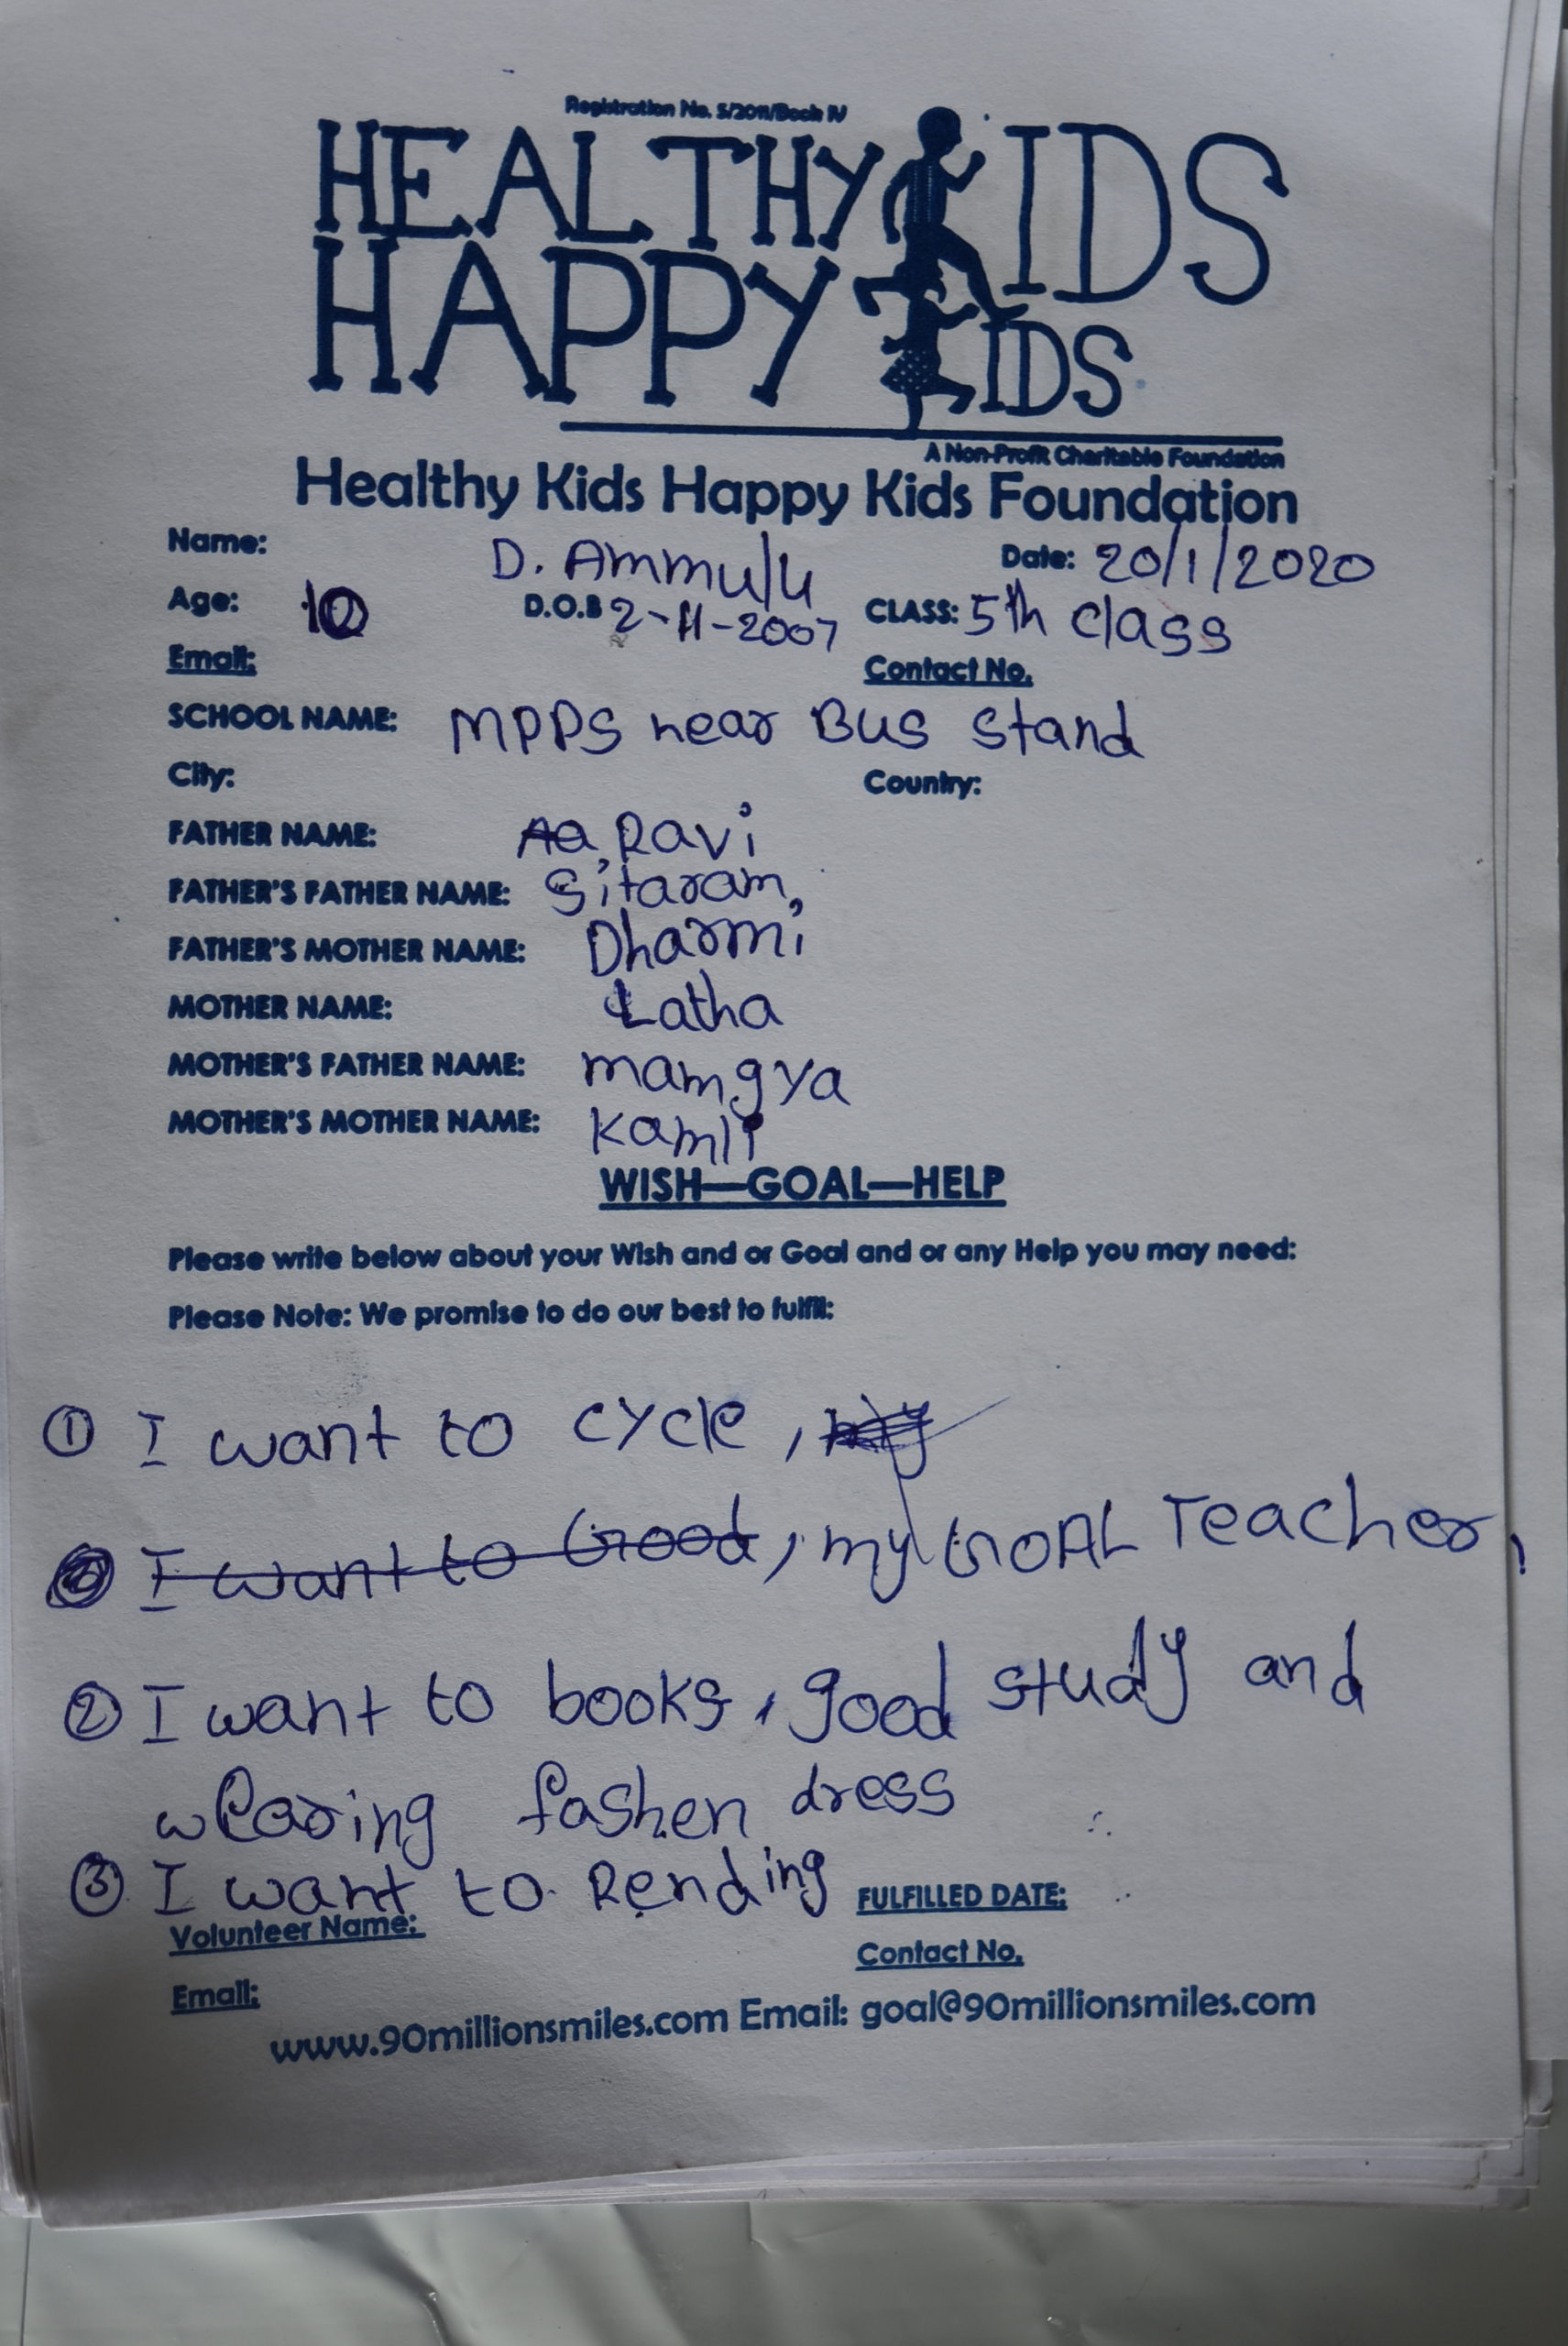 Registration No. 5/2011/Book IV
HEALTHY KIDS
HAPPY KIDS
A Non-Profit Charitable Foundation
Healthy Kids Happy Kids Foundation
Name: D. Ammulu Date: 20/1/2020
Age: 10 D.O.B 2-11-2007 CLASS: 5th class
Email: Contact No.
SCHOOL NAME: MPPS near Bus stand
City: Country:
FATHER NAME: Aa Ravi
FATHER'S FATHER NAME: Sitaram,
FATHER'S MOTHER NAME: Dharmi
MOTHER NAME: Latha
MOTHER'S FATHER NAME: mamgya
MOTHER'S MOTHER NAME: kamli
WISH—GOAL—HELP
Please write below about your Wish and or Goal and or any Help you may need:
Please Note: We promise to do our best to fulfill:
① I want to cycle,
I want to Good, my GOAL Teacher,
② I want to books, good study and
wearing fashen dress
③ I want to Rending FULFILLED DATE:
Volunteer Name:
Contact No.
Email:
www.90millionsmiles.com Email: goal@90millionsmiles.com